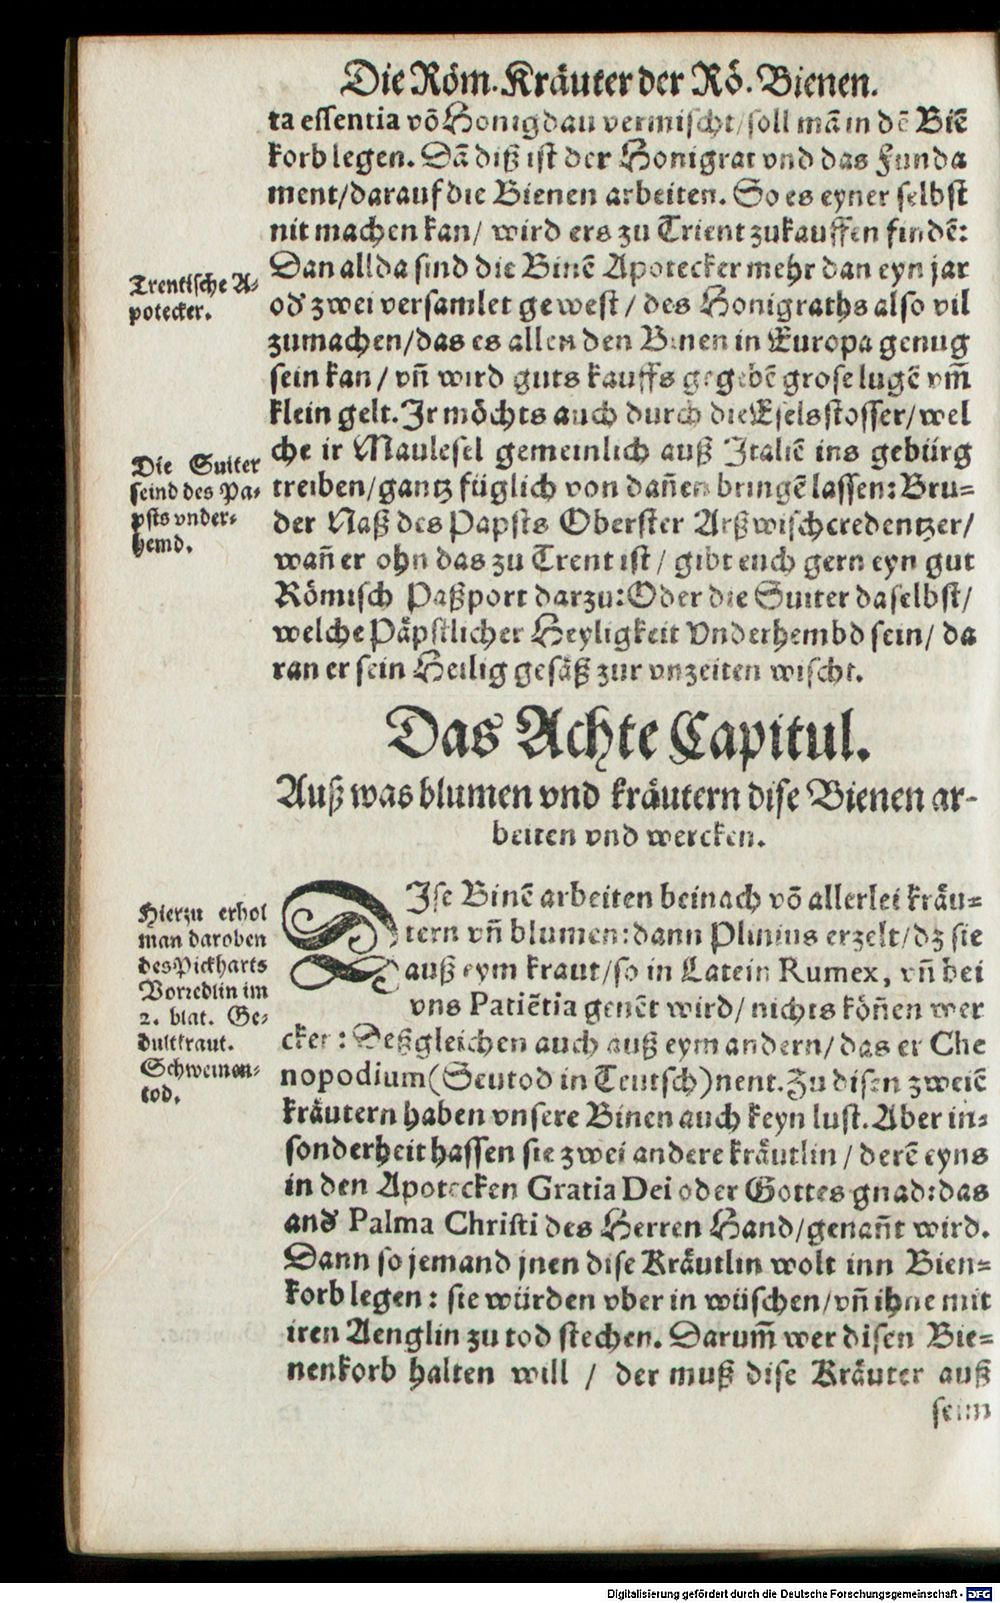 Die Röm. Kräuter der Rö. Bienen.
ta essentia võ Honigdau vermischt/soll mã in dẽ Biẽ
korb legen. Dã diß ist der Honigrat vnd das Funda
ment/darauf die Bienen arbeiten. So es eyner selbst
nit machen kan/ wird ers zu Trient zukauffen findẽ:
Dan allda sind die Binẽ Apotecker mehr dan eyn jar
od' zwei versamlet gewest / des Honigraths also vil
zumachen/das es allen den Binen in Europa genug
sein kan / vñ wird guts kauffs gegebẽ grose lugẽ vm̃
klein gelt. Ir möchts auch durch die Eselsstosser/wel
che ir Maulesel gemeinlich auß Italiẽ ins gebürg
treiben/gantz füglich von dañen bringẽ lassen: Bru-
der Naß des Papsts Oberster Arßwischcredentzer/
wañ er ohn das zu Trent ist / gibt euch gern eyn gut
Römisch Paßport darzu: Oder die Suiter daselbst/
welche Päpstlicher Heyligkeit Vnderhembd sein/ da
ran er sein Heilig gesäß zur vnzeiten wischt.
Trentische A-
potecker.
Die Suiter
seind des Pa-
psts vnder-
hemd.
Das Achte Capitul.
Auß was blumen vnd kräutern dise Bienen ar-
beiten vnd wercken.
DIse Binẽ arbeiten beinach võ allerlei kräu-
tern vñ blumen: dann Plinius erzelt/dz sie
auß eym kraut/so in Latein Rumex, vñ bei
vns Patiẽtia genẽt wird/ nichts köñen wer
cker: Deßgleichen auch auß eym andern/ das er Che
nopodium (Seutod in Teutsch) nent. Zu disen zweiẽ
kräutern haben vnsere Binen auch keyn lust. Aber in-
sonderheit hassen sie zwei andere kräutlin / derẽ eyns
in den Apotecken Gratia Dei oder Gottes gnad: das
and' Palma Christi des Herren Hand/genañt wird.
Dann so jemand jnen dise Kräutlin wolt inn Bien-
korb legen: sie würden vber in wüschen/vñ ihne mit
iren Aenglin zu tod stechen. Darum̃ wer disen Bie-
nenkorb halten will / der muß dise Kräuter auß
seim
Hierzu erhol
man daroben
des Pickharts
Vorredlin im
2. blat. Ge-
dultkraut.
Schweinen-
tod.
Digitalisierung gefördert durch die Deutsche Forschungsgemeinschaft - DFG